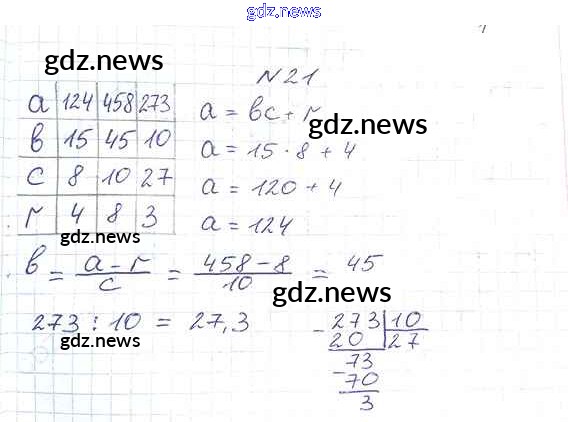 gdz.news
gdz.news
N 21
a 124 458 273
в 15 45 10
c 8 10 27
r 4 8 3
gdz.news
a = вc + r
gdz.news
a = 15 · 8 + 4
a = 120 + 4
a = 124
в = a - r / c = 458 - 8 / 10 = 45
gdz.news
273 : 10 = 27,3
gdz.news
- 273 | 10
20 27
- 73
70
3